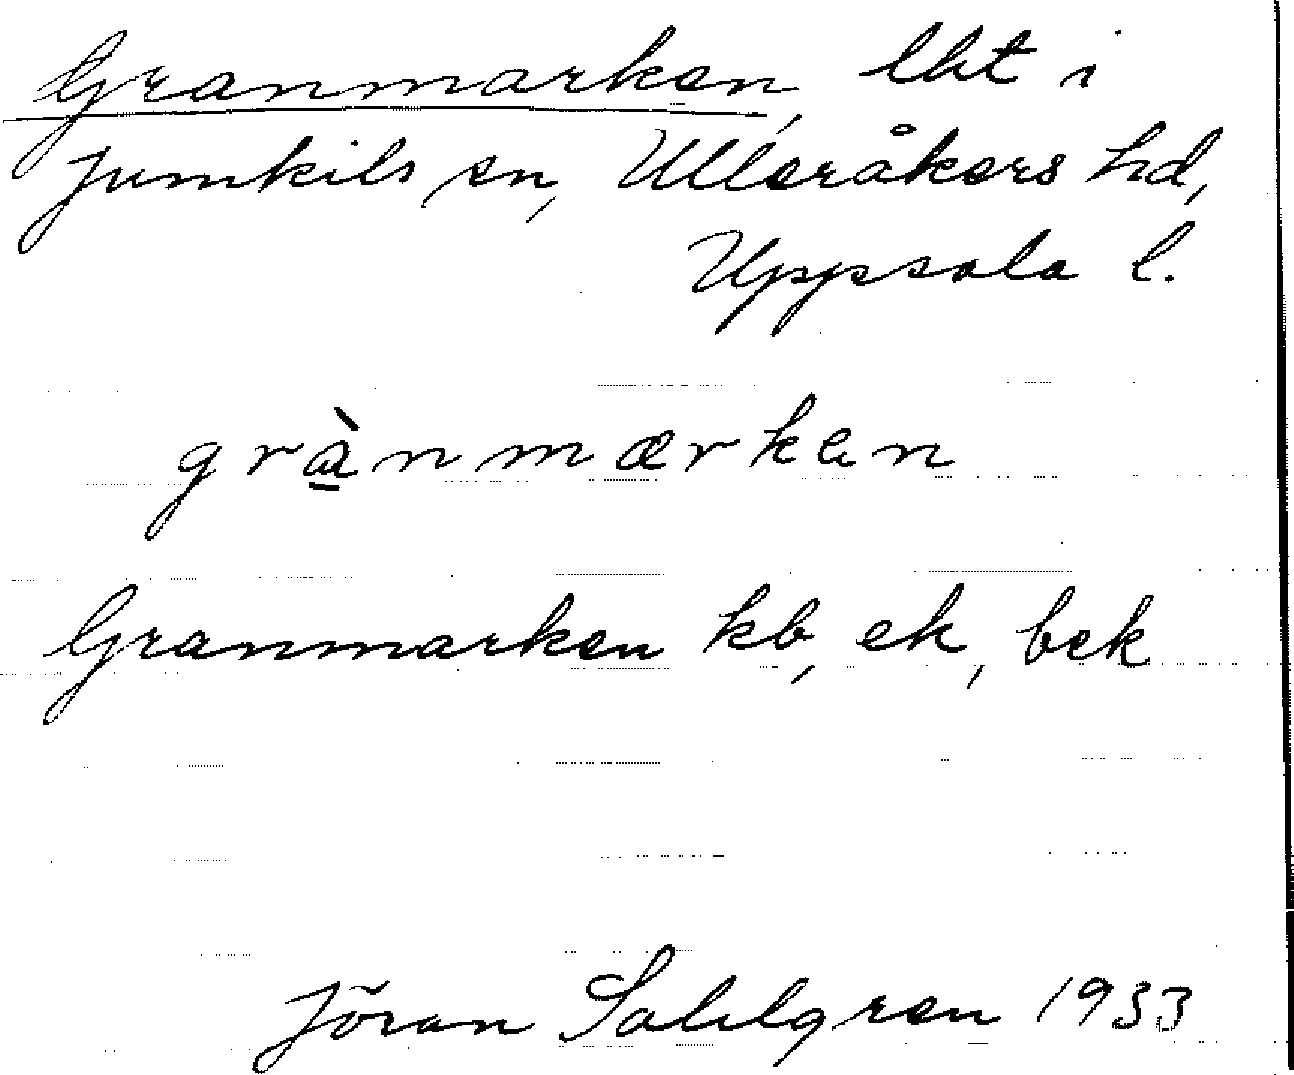 Granmarken, lht i
Jumkils sn, Ulleråkers hd,
Uppsala l.
grànmærkan
Granmarken kb, ek, bek
Jöran Sahlgren 1933